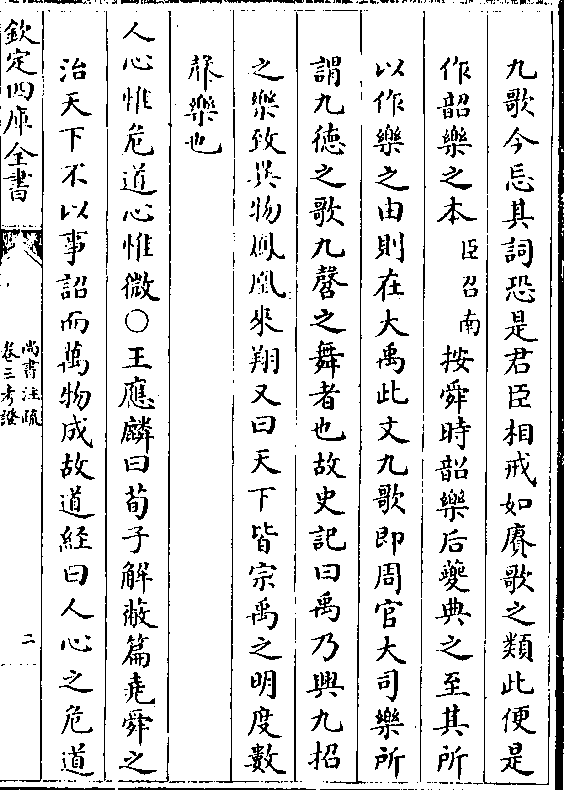 九歌今忘其詞恐是君臣相戒如賡歌之類此便是
作韶樂之本臣召南按舜時韶樂后夔典之至其所
以作樂之由則在大禹此文九歌即周官大司樂所
謂九德之歌九磬之舞者也故史記曰禹乃興九招
之樂致異物鳳凰來翔又曰天下皆宗禹之明度數
聲樂也
人心惟危道心惟微○王應麟曰荀子解蔽篇堯舜之
治天下不以事詔而萬物成故道經曰人心之危道
欽定四庫全書
尚書注疏
卷三考證
二